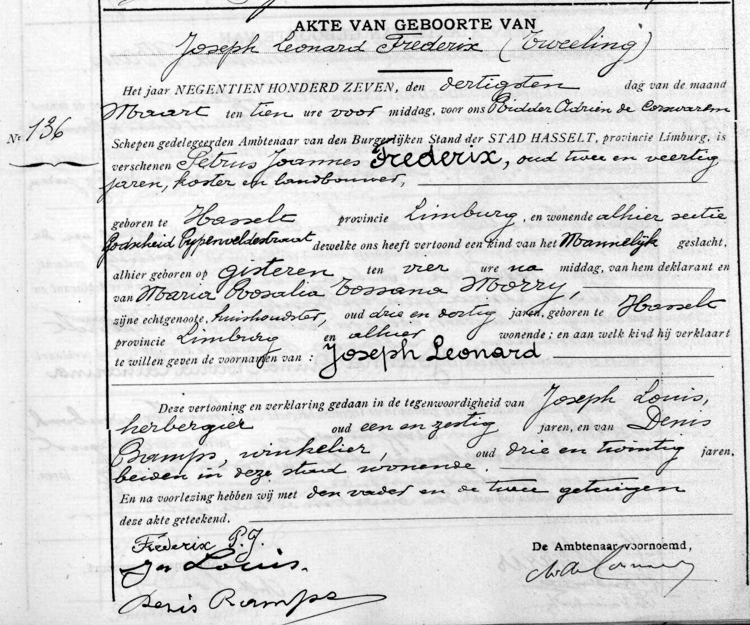 AKTE VAN GEBOORTE VAN
Joseph Leonard Frederix (Tweeling)
Het jaar NEGENTIEN HONDERD ZEVEN, den dertigsten dag van de maand
Nr 136
Maart ten tien ure voor middag, voor ons Ridder Adrien de Corswarem
Schepen gedelegeerden Ambtenaar van den Burgerlijken Stand der STAD HASSELT, provincie Limburg, is
verschenen Petrus Joannes Frederix, oud twee en veertig
jaren, koster en landbouwer,
geboren te Hasselt provincie Limburg, en wonende alhier sectie
Godscheid Pypenveldstraat dewelke ons heeft vertoond een kind van het Mannelijk geslacht,
alhier geboren op gisteren ten vier ure na middag, van hem deklarant en
van Maria Rosalia Tossana Morry,
zijne echtgenoote, huishoudster, oud drie en dertig jaren, geboren te Hasselt
provincie Limburg en alhier wonende; en aan welk kind hij verklaart
te willen geven de voornamen van : Joseph Leonard
Deze vertooning en verklaring gedaan in de tegenwoordigheid van Joseph Louis,
herbergier oud een en zestig jaren, en van Denis
Ramps, winkelier, oud drie en twintig jaren,
beiden in deze stad wonende.
En na voorlezing hebben wij met den vader en de twee getuigen
deze akte geteekend.
Fréderix P.J.
De Ambtenaar voornoemd,
Jn Louis.
Denis Ramps